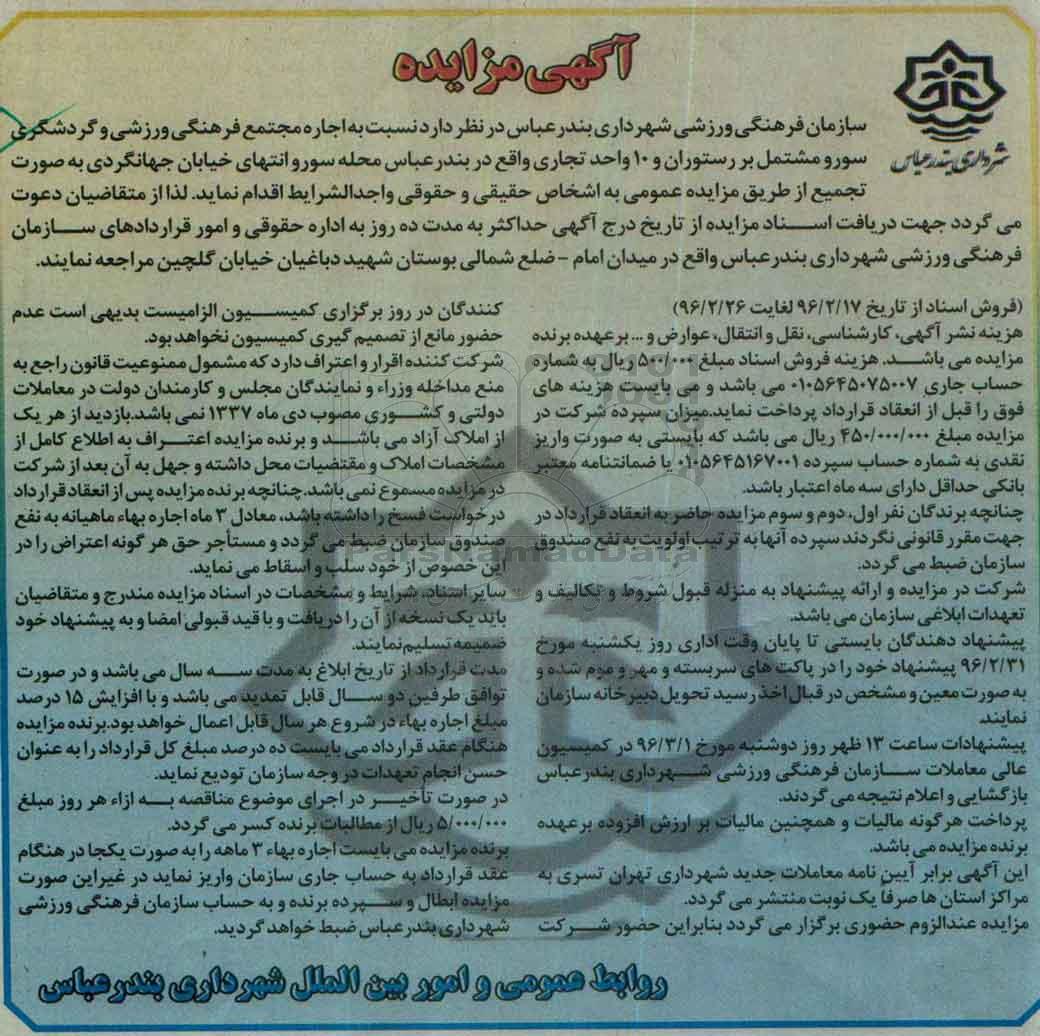 آگهی مزایده
شهرداری بندرعباس
سازمان فرهنگی ورزشی شهرداری بندرعباس در نظر دارد نسبت به اجاره مجتمع فرهنگی ورزشی و گردشگری
سورو مشتمل بر رستوران و ۱۰ واحد تجاری واقع در بندرعباس محله سورو انتهای خیابان جهانگردی به صورت
تجمیع از طریق مزایده عمومی به اشخاص حقیقی و حقوقی واجدالشرایط اقدام نماید. لذا از متقاضیان دعوت
می گردد جهت دریافت اسناد مزایده از تاریخ درج آگهی حداکثر به مدت ده روز به اداره حقوقی و امور قراردادهای سازمان
فرهنگی ورزشی شهرداری بندرعباس واقع در میدان امام - ضلع شمالی بوستان شهید دباغیان خیابان گلچین مراجعه نمایند.
(فروش اسناد از تاریخ ۹۶/۲/۱۷ لغایت ۹۶/۲/۲۶)
هزینه نشر آگهی، کارشناسی، نقل و انتقال، عوارض و ... برعهده برنده
مزایده می باشد. هزینه فروش اسناد مبلغ ۵۰۰/۰۰۰ ریال به شماره
حساب جاری ۰۱۰۵۶۴۵۰۷۵۰۰۷ می باشد و می بایست هزینه های
فوق را قبل از انعقاد قرارداد پرداخت نماید.میزان سپرده شرکت در
مزایده مبلغ ۴۵۰/۰۰۰/۰۰۰ ریال می باشد که بایستی به صورت واریز
نقدی به شماره حساب سپرده ۰۱۰۵۶۴۵۱۶۷۰۰۱ یا ضمانتنامه معتبر
بانکی حداقل دارای سه ماه اعتبار باشد.
چنانچه برندگان نفر اول، دوم و سوم مزایده حاضر به انعقاد قرارداد در
جهت مقرر قانونی نگردند سپرده آنها به ترتیب اولویت به نفع صندوق
سازمان ضبط می گردد.
شرکت در مزایده و ارائه پیشنهاد به منزله قبول شروط و تکالیف و
تعهدات ابلاغی سازمان می باشد.
پیشنهاد دهندگان بایستی تا پایان وقت اداری روز یکشنبه مورخ
۹۶/۲/۳۱ پیشنهاد خود را در پاکت های سربسته و مهر و موم شده و
به صورت معین و مشخص در قبال اخذ رسید تحویل دبیرخانه سازمان
نمایند
پیشنهادات ساعت ۱۳ ظهر روز دوشنبه مورخ ۹۶/۳/۱ در کمیسیون
عالی معاملات سازمان فرهنگی ورزشی شهرداری بندرعباس
بازگشایی و اعلام نتیجه می گردند.
پرداخت هرگونه مالیات و همچنین مالیات بر ارزش افزوده برعهده
برنده مزایده می باشد.
این آگهی برابر آیین نامه معاملات جدید شهرداری تهران تسری به
مراکز استان ها صرفاً یک نوبت منتشر می گردد.
مزایده عندالزوم حضوری برگزار می گردد بنابراین حضور شرکت
کنندگان در روز برگزاری کمیسیون الزامیست بدیهی است عدم
حضور مانع از تصمیم گیری کمیسیون نخواهد بود.
شرکت کننده اقرار و اعتراف دارد که مشمول ممنوعیت قانون راجع به
منع مداخله وزراء و نمایندگان مجلس و کارمندان دولت در معاملات
دولتی و کشوری مصوب دی ماه ۱۳۳۷ نمی باشد.بازدید از هر یک
از املاک آزاد می باشد و برنده مزایده اعتراف به اطلاع کامل از
مشخصات املاک و مقتضیات محل داشته و جهل به آن بعد از شرکت
در مزایده مسموع نمی باشد.چنانچه برنده مزایده پس از انعقاد قرارداد
درخواست فسخ را داشته باشد، معادل ۳ ماه اجاره بهاء ماهیانه به نفع
صندوق سازمان ضبط می گردد و مستأجر حق هر گونه اعتراض را در
این خصوص از خود سلب و اسقاط می نماید.
سایر اسناد، شرایط و مشخصات در اسناد مزایده مندرج و متقاضیان
باید یک نسخه از آن را دریافت و با قید قبولی امضا و به پیشنهاد خود
ضمیمه تسلیم نمایند.
مدت قرارداد از تاریخ ابلاغ به مدت سه سال می باشد و در صورت
توافق طرفین دو سال قابل تمدید می باشد و با افزایش ۱۵ درصد
مبلغ اجاره بهاء در شروع هر سال قابل اعمال خواهد بود.برنده مزایده
هنگام عقد قرارداد می بایست ده درصد مبلغ کل قرارداد را به عنوان
حسن انجام تعهدات در وجه سازمان تودیع نماید.
در صورت تأخیر در اجرای موضوع مناقصه به ازاء هر روز مبلغ
۵/۰۰۰/۰۰۰ ریال از مطالبات برنده کسر می گردد.
برنده مزایده می بایست اجاره بهاء ۳ ماهه را به صورت یکجا در هنگام
عقد قرارداد به حساب جاری سازمان واریز نماید در غیراین صورت
مزایده ابطال و سپرده برنده و به حساب سازمان فرهنگی ورزشی
شهرداری بندرعباس ضبط خواهد گردید.
ParsNamadData
روابط عمومی و امور بین الملل شهرداری بندرعباس